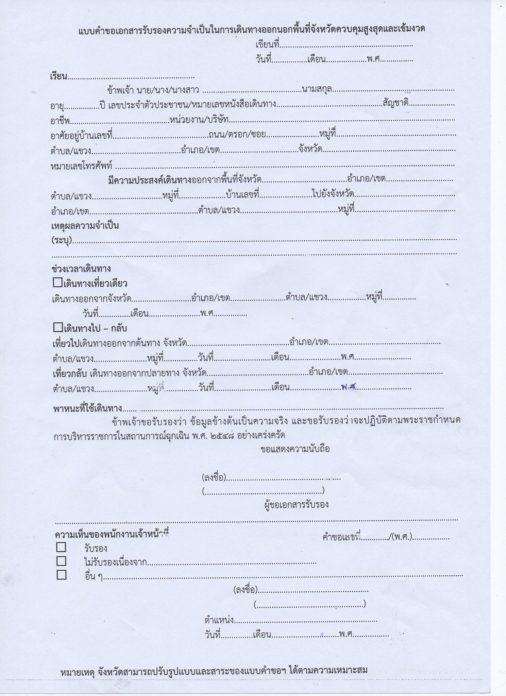 แบบคำขอเอกสารรับรองความจำเป็นในการเดินทางออกนอกพื้นที่จังหวัดควบคุมสูงสุดและเข้มงวด
เขียนที่................................................
วันที่................เดือน................พ.ศ.............
เรียน................................................
ข้าพเจ้า นาย/นาง/นางสาว ....................................นามสกุล............................................
อายุ............ปี เลขประจำตัวประชาชน/หมายเลขหนังสือเดินทาง................................................สัญชาติ................
อาชีพ....................................หน่วยงาน/บริษัท................................................................................
อาศัยอยู่บ้านเลขที่....................................ถนน/ตรอก/ซอย....................หมู่ที่................................
ตำบล/แขวง................................อำเภอ/เขต............................จังหวัด............................................
หมายเลขโทรศัพท์ ................................................................................................
มีความประสงค์เดินทางออกจากพื้นที่จังหวัด................................อำเภอ/เขต........................
ตำบล/แขวง........................หมู่ที่................บ้านเลขที่....................ไปยังจังหวัด................................
อำเภอ/เขต........................................ตำบล/แขวง....................................หมู่ที่................................
เหตุผลความจำเป็น
(ระบุ)................................................................................................................................
................................................................................................................................
ช่วงเวลาเดินทาง
☐เดินทางเที่ยวเดียว
เดินทางออกจากจังหวัด........................อำเภอ/เขต....................ตำบล/แขวง................หมู่ที่............
วันที่............เดือน....................พ.ศ.............
☐เดินทางไป – กลับ
เที่ยวไปเดินทางออกจากต้นทาง จังหวัด................................................อำเภอ/เขต........................................
ตำบล/แขวง....................หมู่ที่............วันที่....................เดือน....................พ.ศ.........................
เที่ยวกลับ เดินทางออกจากปลายทาง จังหวัด................................................อำเภอ/เขต....................................
ตำบล/แขวง....................หมู่ที่............วันที่....................เดือน....................พ.ศ.........................
พาหนะที่ใช้เดินทาง........................................................................................................
ข้าพเจ้าขอรับรองว่า ข้อมูลข้างต้นเป็นความจริง และขอรับรองว่าจะปฏิบัติตามพระราชกำหนด
การบริหารราชการในสถานการณ์ฉุกเฉิน พ.ศ. ๒๕๔๘ อย่างเคร่งครัด
ขอแสดงความนับถือ
(ลงชื่อ)............................................
(............................................)
ผู้ขอเอกสารรับรอง
................................................................................................................................
ความเห็นของพนักงานเจ้าหน้าที่
คำขอเลขที่............/(พ.ศ.)............
☐ รับรอง
☐ ไม่รับรองเนื่องจาก............................................................
☐ อื่น ๆ................................................................................................................
(ลงชื่อ)............................................
(............................................)
ตำแหน่ง....................................................
วันที่................เดือน........................พ.ศ.................
หมายเหตุ จังหวัดสามารถปรับรูปแบบและสาระของแบบคำขอฯ ได้ตามความเหมาะสม